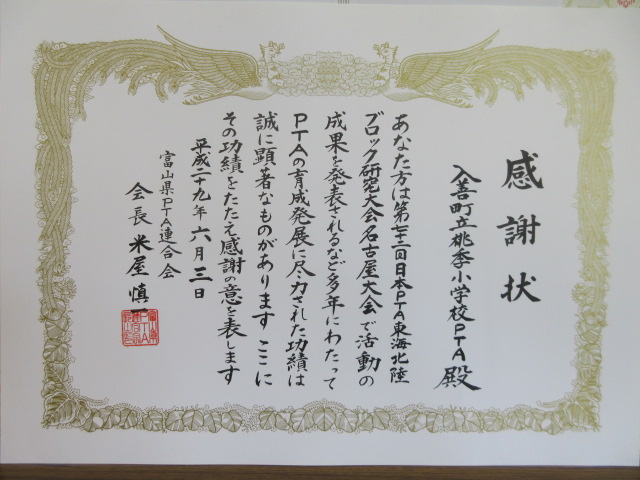 感謝状
入善町立桃李小学校PTA殿
あなた方は第七二回日本PTA東海北陸
ブロック研究大会名古屋大会で活動の
成果を発表されるなど多年にわたって
PTAの育成発展に尽力された功績は
誠に顕著なものがあります ここに
その功績をたたえ感謝の意を表します
平成二十九年六月三日
富山県PTA連合会
会長 米屋 慎一